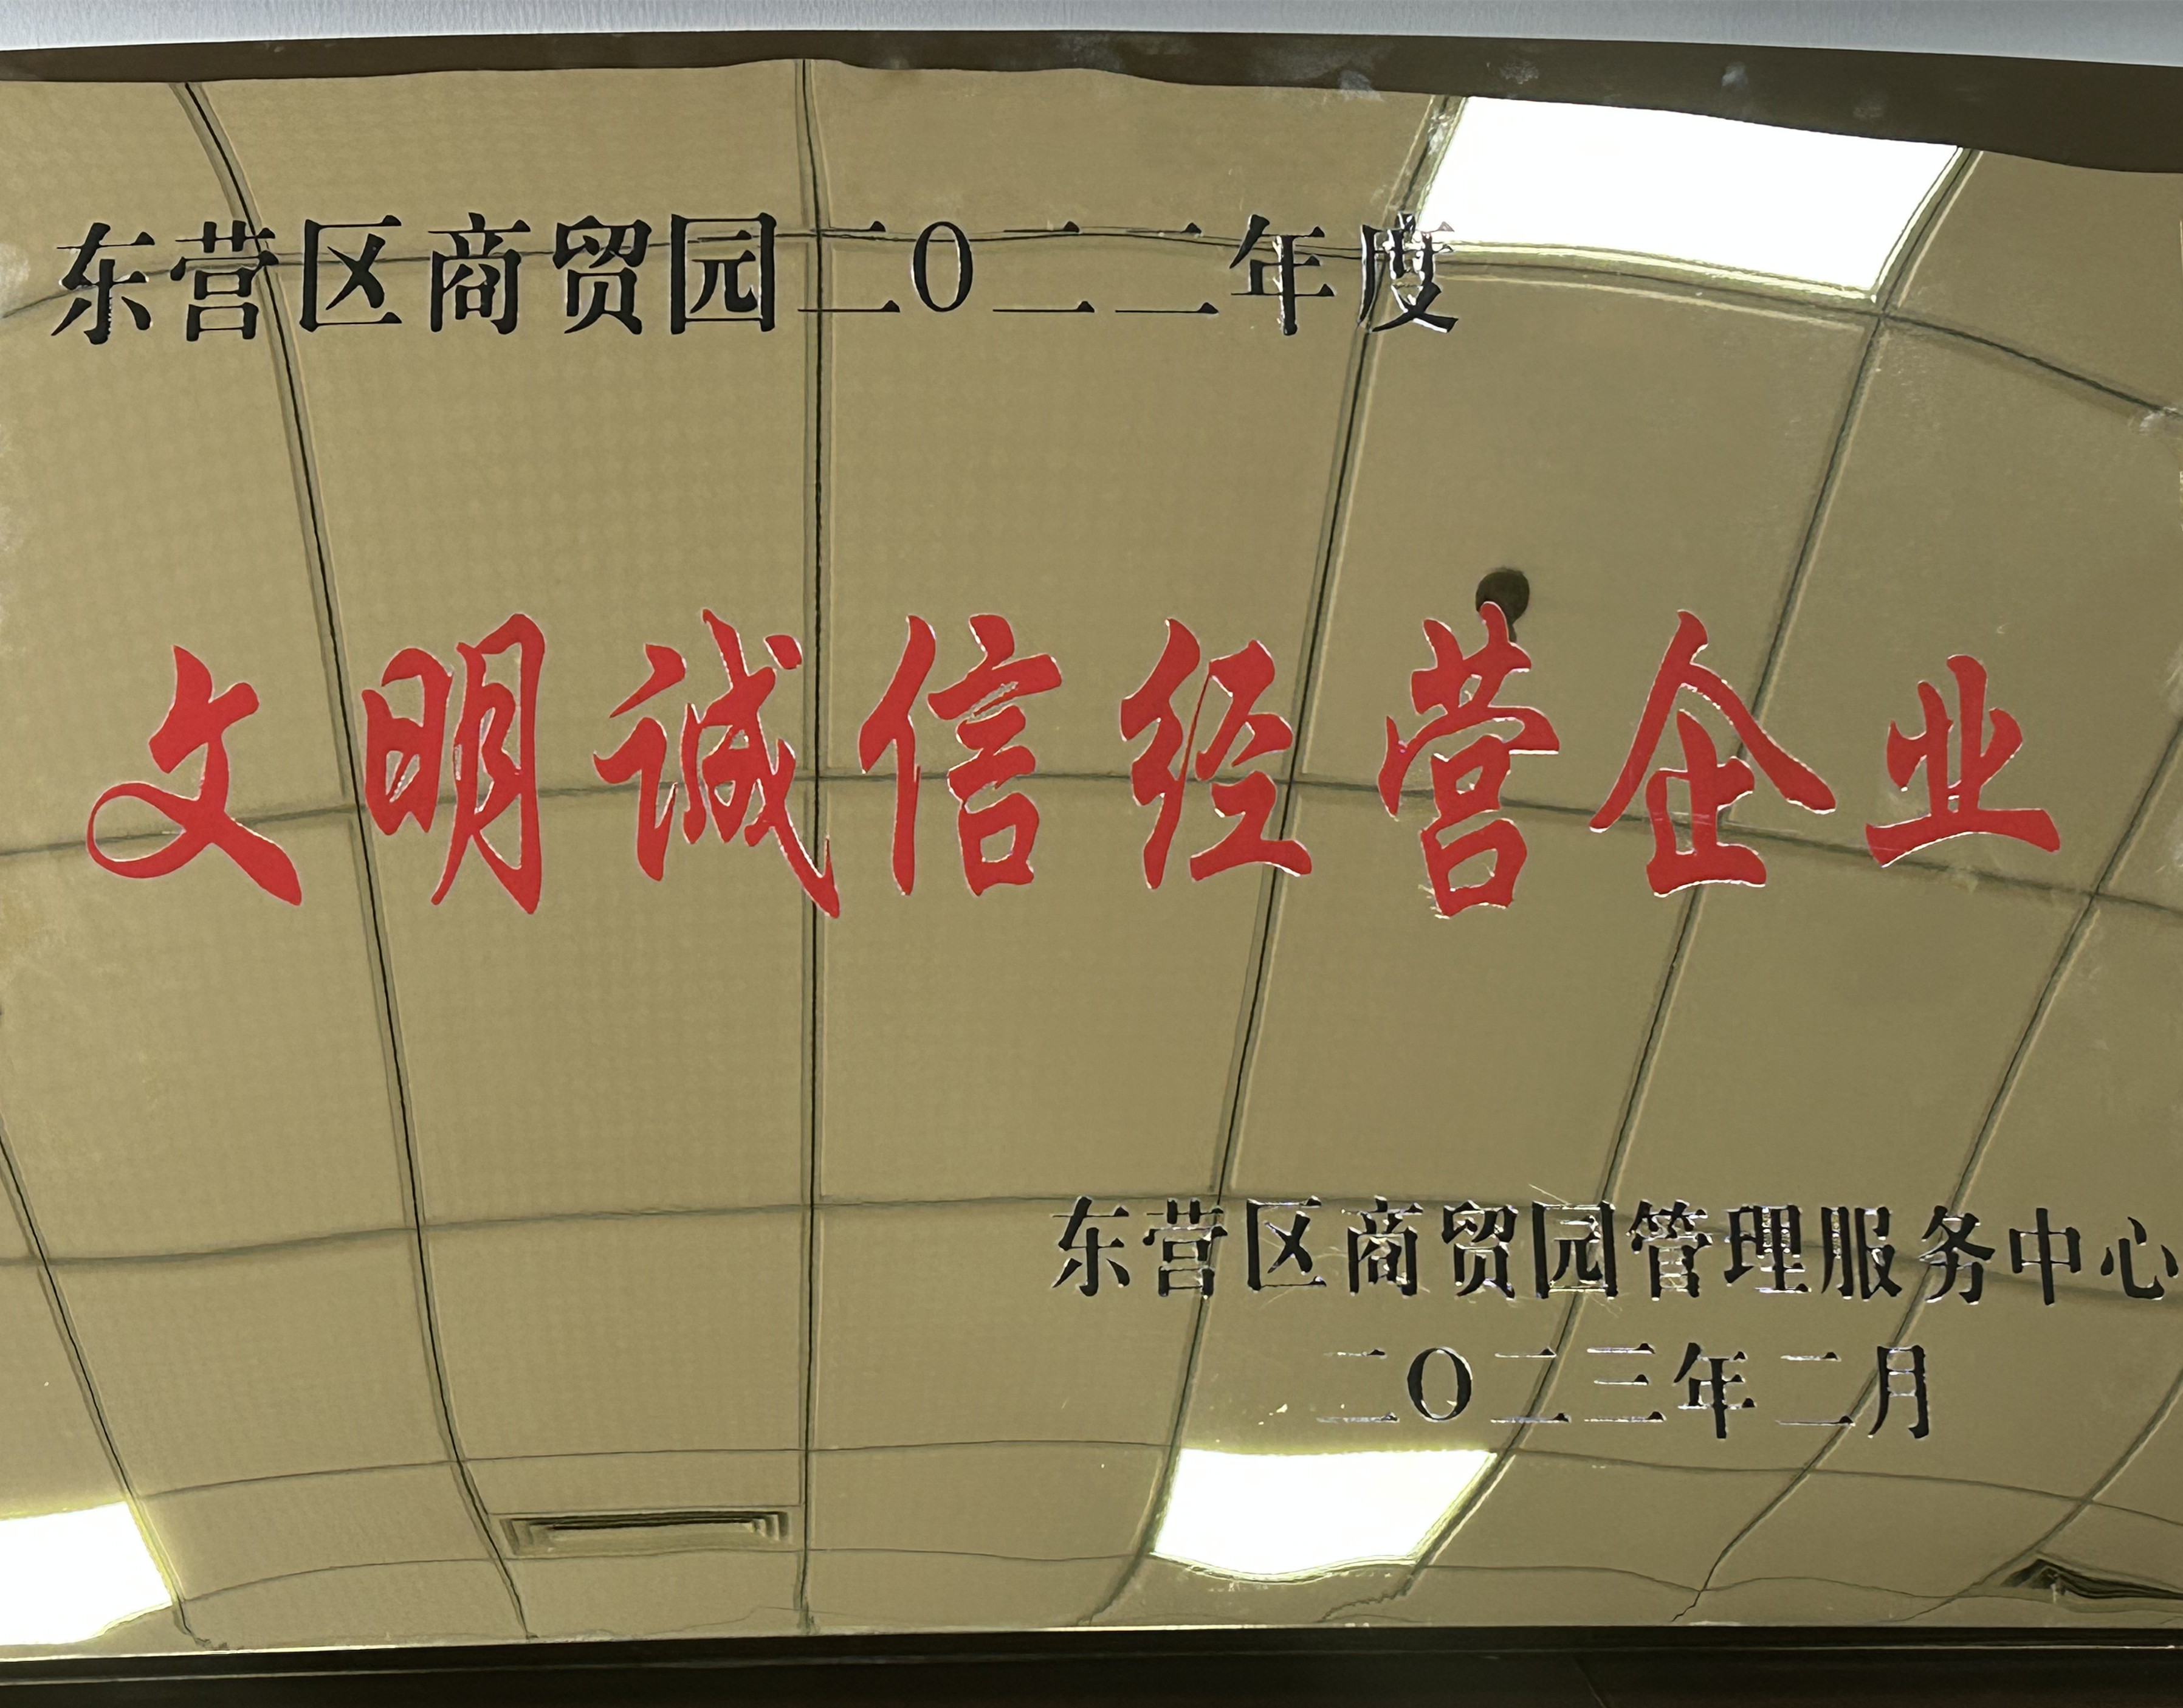 东营区商贸园二〇二二年度
文明诚信经营企业
东营区商贸园管理服务中心
二〇二三年二月